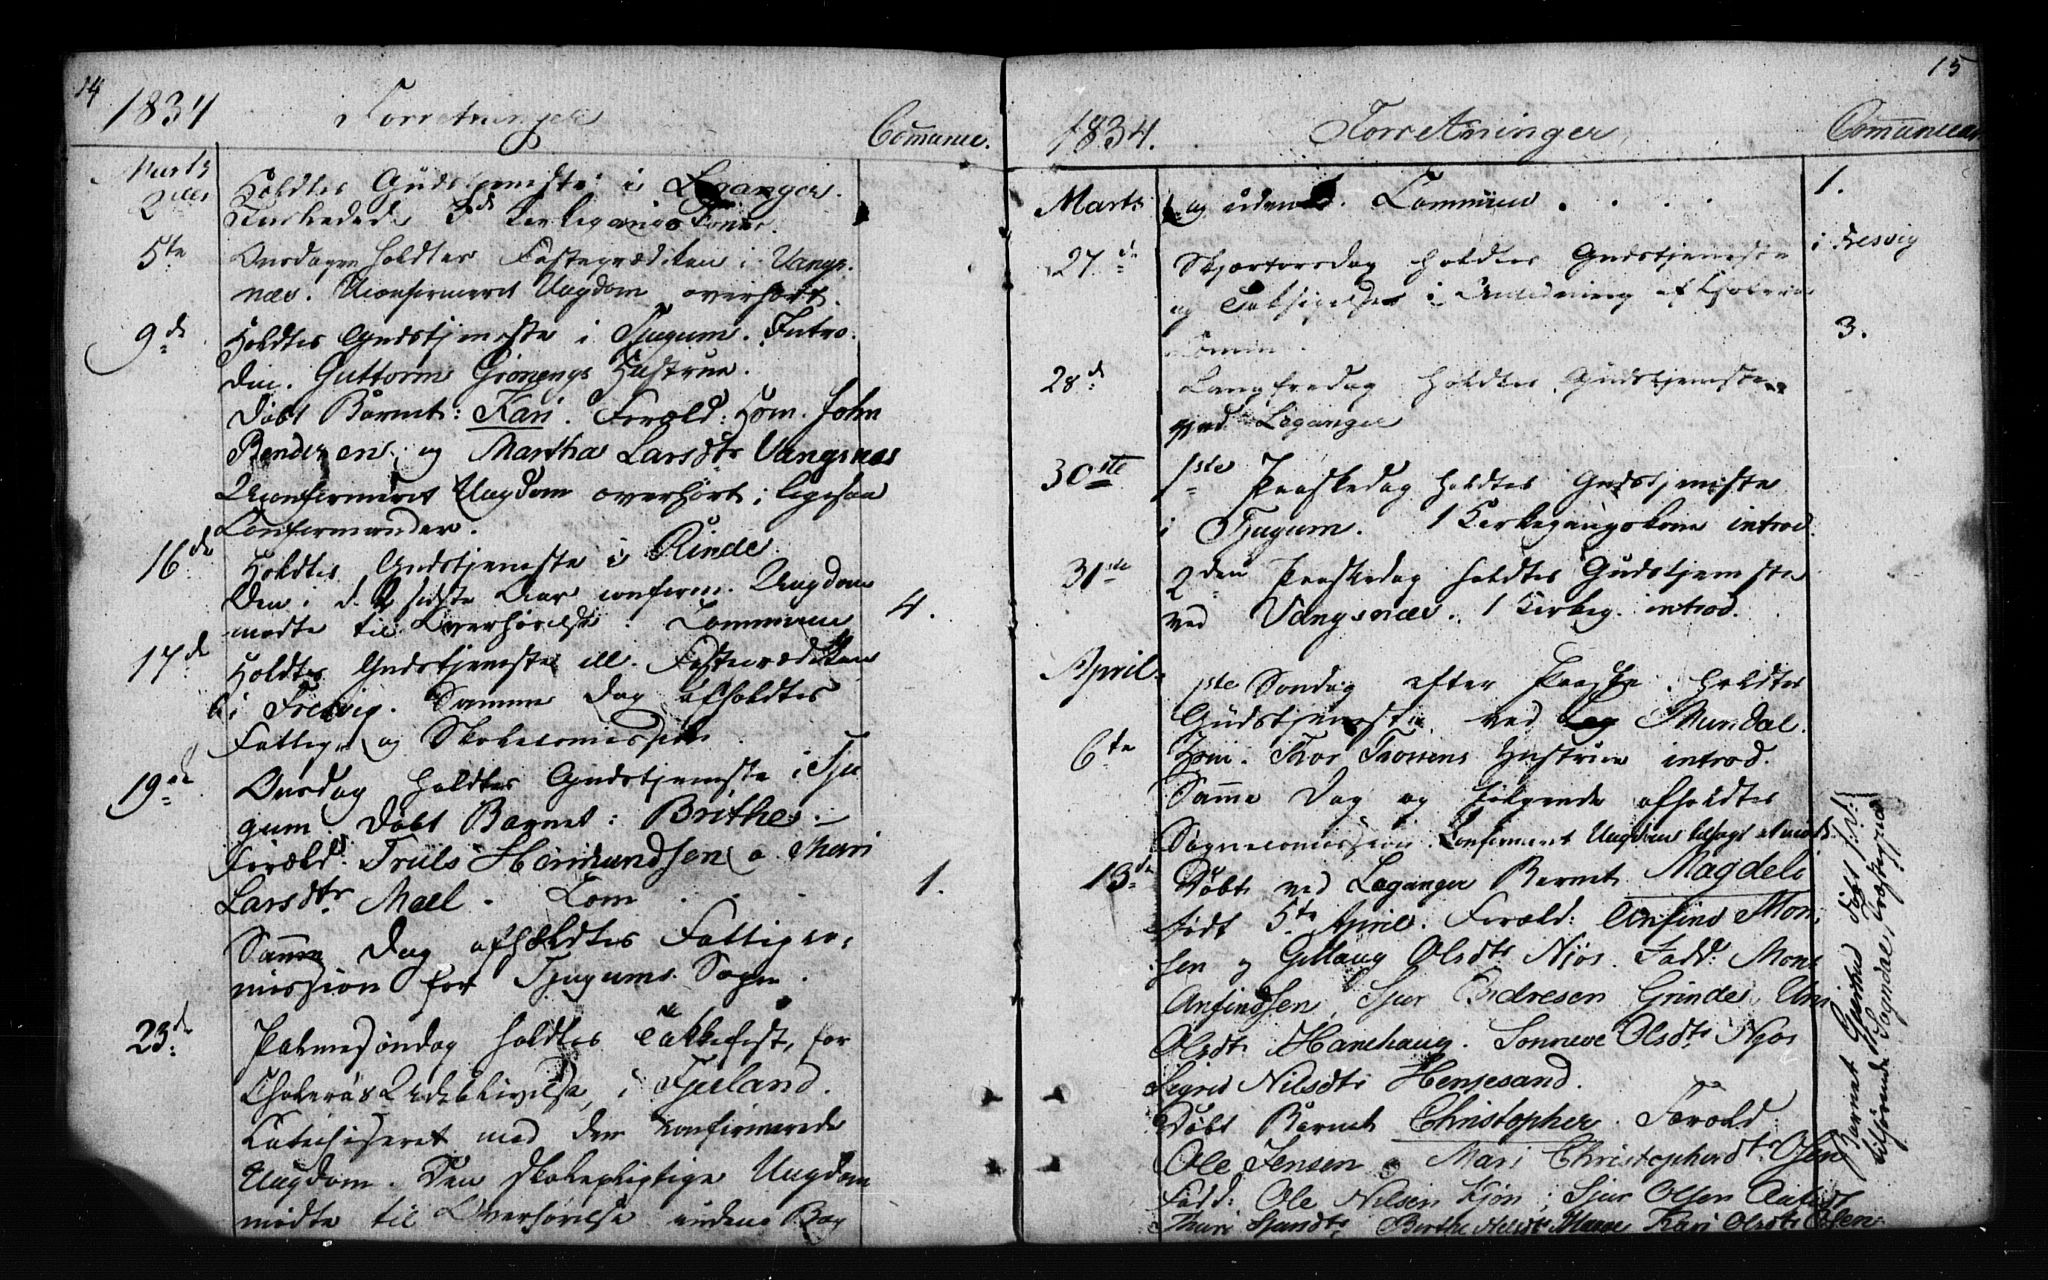 14
1834 Forretninger Comunic.
Marts
2den Holdtes Gudstjeneste i Leganger.
5te Onsdagen holdtes Fasteprædiken i Vangs-
næs. Uconfirmeret Ungdom overhørt.
9de Holdtes Gudstjeneste i Tjugum. Intro-
duc. Guttorm Hustrue.
Døbt Barnet: Kari. Foræld: Hom. John
Bendixen og Martha Larsdtr Vangsnæs
Uconfirmeret Ungdom overhørt, ligesaa
Confirmander.
16de Holdtes Gudstjeneste i Rinde.
Den i d. 2 sidste Aar confirm. Ungdom
mødte til Overhørelse. Commune 4.
17de Holdtes Gudstjeneste ell. Fasteprædiken
i Fresvig. Samme Dag afholdtes
Fattig- og Skolecomission.
19de Onsdag holdtes Gudstjeneste i Tju-
gum. Døbt Barnet: Brithe.
Foræld: Truls Hermundsen o Mari
Larsdtr Mæl. Com . . . 1.
Samme Dag afholdtes Fattigco-
mission for Tjugums Sogn.
23de Palmesøndag holdtes Takkefest, for
Choleras Udeblivelse, i Fjerland.
Catechiseret med den confirmerede
Ungdom. Den skolepligtige Ungdom
mødte til Overhørelse uden Bog
15
1834. Forretninger Communican
Marts og uden d. Commun . . . . 1.
27de Skjærtorsdag holdtes Gudstjeneste i Fresvig
og Taksigelse i Anledning af Cholera
Comm. 3.
28de Langfredag holdtes Gudstjeneste
ved Leganger
30ste 1ste Paaskedag holdtes Gudstjeneste
i Tjugum. 1 Kirkegangskone introd.
31te 2den Paaskedag holdtes Gudstjeneste
ved Vangsnæs. 1 Kirkeg. introd.
April. 1ste Søndag efter Paaske holdtes
Gudstjeneste ved Mundal.
6te Hom. Thor Hustrue introd.
Samme Dag og følgende afholdtes
Sognecomission. Confirmeret Ungdom
13de Døbt ved Leganger Barnet Magdeli
født 5te April. Foræld: Anfind Mon-
sen og Gillaug Olsdtr Njøs. Fadd: Mons
Anfindsen, Sjur Andresen Grinde,
Olsdtr Hanehaug. Sonneve Olsdtr Njøs
Sigrid Nilsdtr Henjesand.
Døbt Barnet Christopher. Foræld:
Ole Jensen o Mari Christophersdtr Olsen
Fadd: Ole Nilsen, Sjur Olsen
Brithe Nilsdtr Kari Olsdtr
Barnet døbt
tilhørende Sogndals Præstegjeld